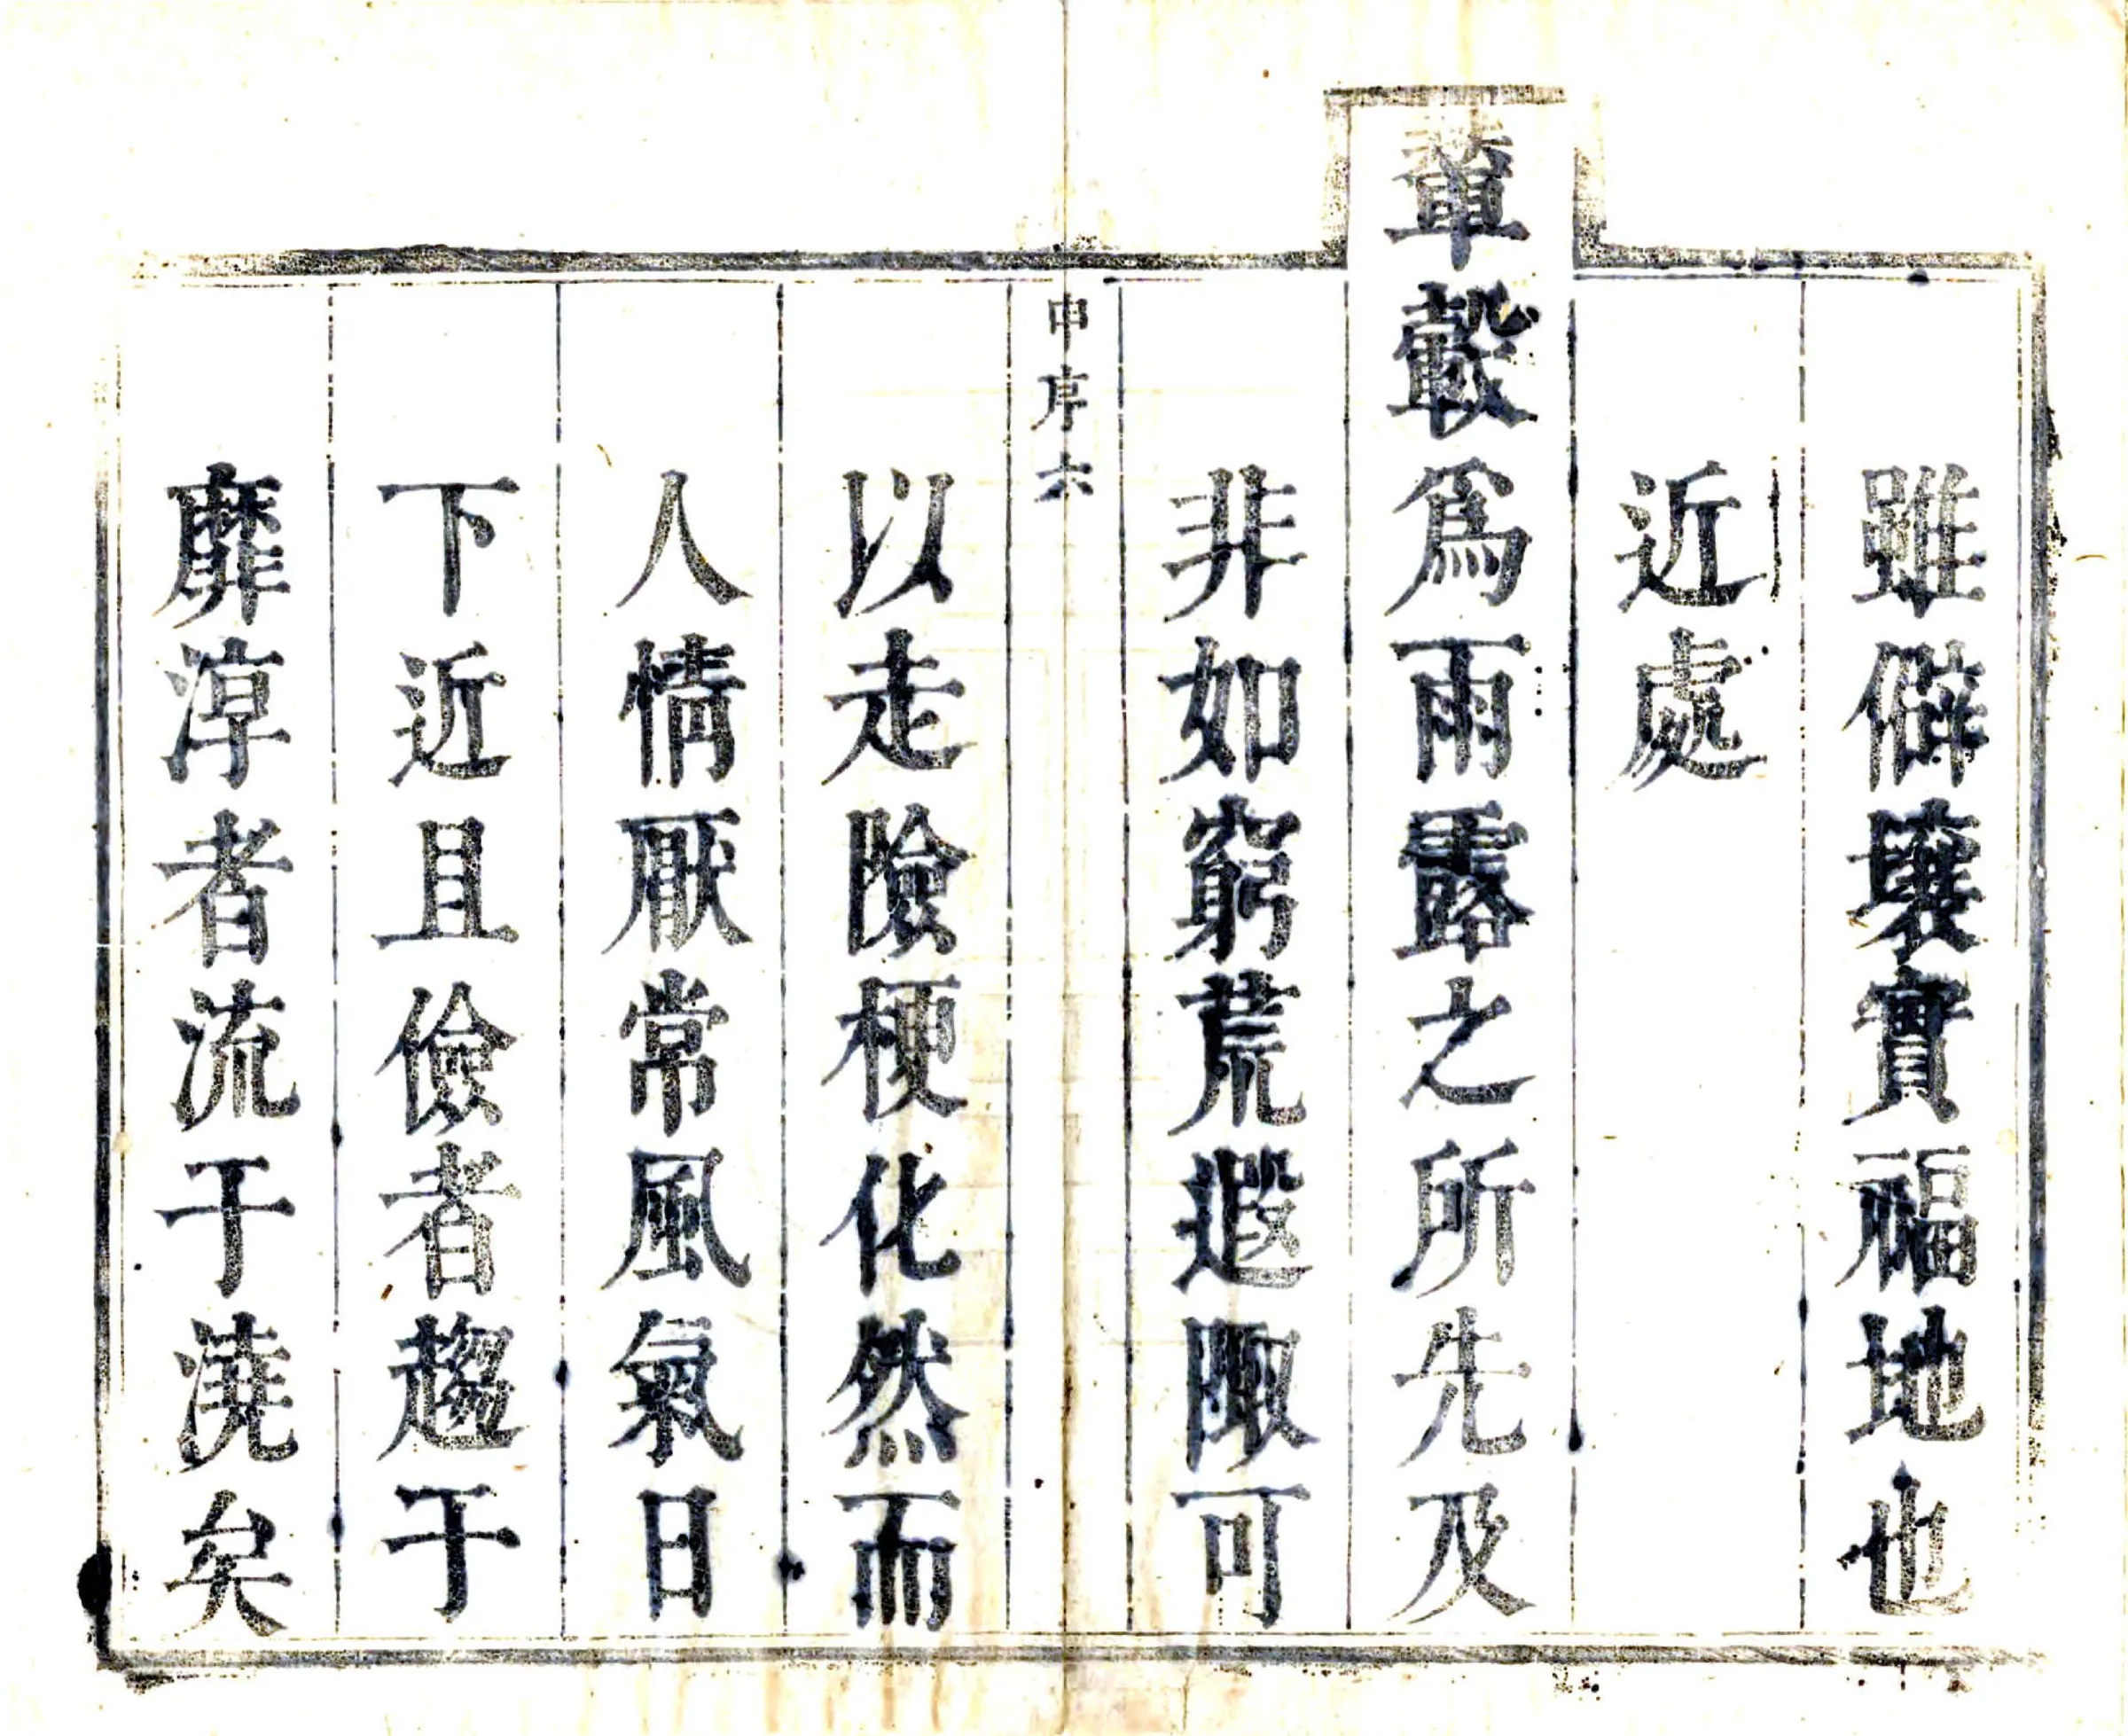 雖僻壤實福地也
近處
輦轂爲雨露之所先及
非如窮荒遐陬可
申序六
以走險梗化然而
人情厭常風氣日
下近且儉者趨于
靡淳者流于澆矣